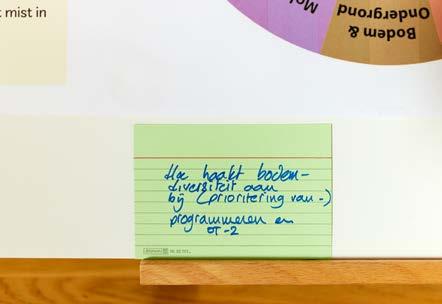 t mist in
Mo
Bodem &
Ondergrond
Hoe haakt bodem-
diversiteit aan
bij (prioritering van -)
programmeren en
OT-2